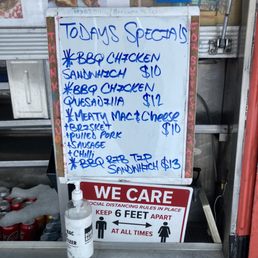 TODAYS SPECIALS
*BBQ CHICKEN
SANDWHICH $10
*BBQ CHICKEN
QUESADILLA $12
*MEATY MAC & CHEESE
+BRISKET $10
+PULLED PORK
+SAUSAGE
+CHILI
*BBQ RIB TIP
SANDWHICH $13
WE CARE
SOCIAL DISTANCING RULES IN PLACE
KEEP 6 FEET APART
AT ALL TIMES